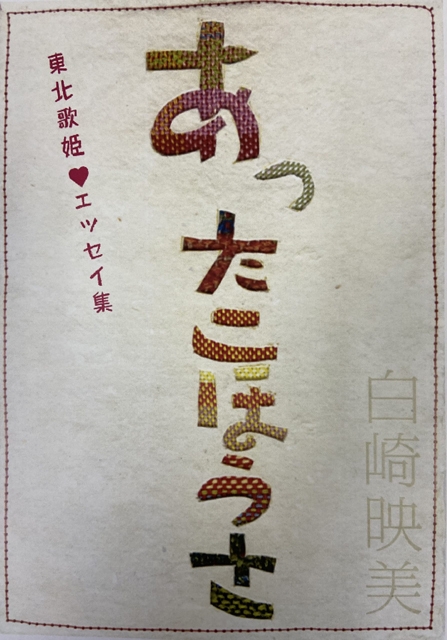 あったこほうさ
東北歌姫♥エッセイ集
白崎映美